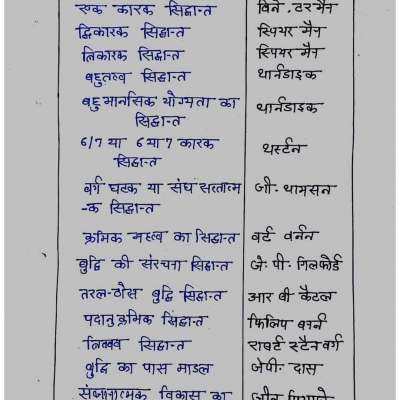 एक कारक सिद्धान्त	विने, टरमैन
द्विकारक सिद्धान्त	स्पियर मैन
त्रिकारक सिद्धान्त	स्पियर मैन
बहुतत्व सिद्धान्त	थार्नडाइक
बहु मानसिक योग्यता का	थार्नडाइक
सिद्धान्त
6/7 या 6 या 7 कारक	थर्स्टन
सिद्धान्त
वर्ग घटक या संघ सत्तात्म	जी॰ थामसन
-क सिद्धान्त
क्रमिक महत्व का सिद्धान्त	वर्ट वर्नन
बुद्धि की संरचना सिद्धान्त	जे॰ पी॰ गिलफोर्ड
तरल-ठोस बुद्धि सिद्धान्त	आर वी कैटल
पदानुक्रमिक सिद्धान्त	फिलिप वर्न
त्रितत्व सिद्धान्त	रावर्ट स्टैनवर्ग
बुद्धि का पास माडल	जेपी॰ दास
संज्ञानात्मक विकास का	जीन पियाजे